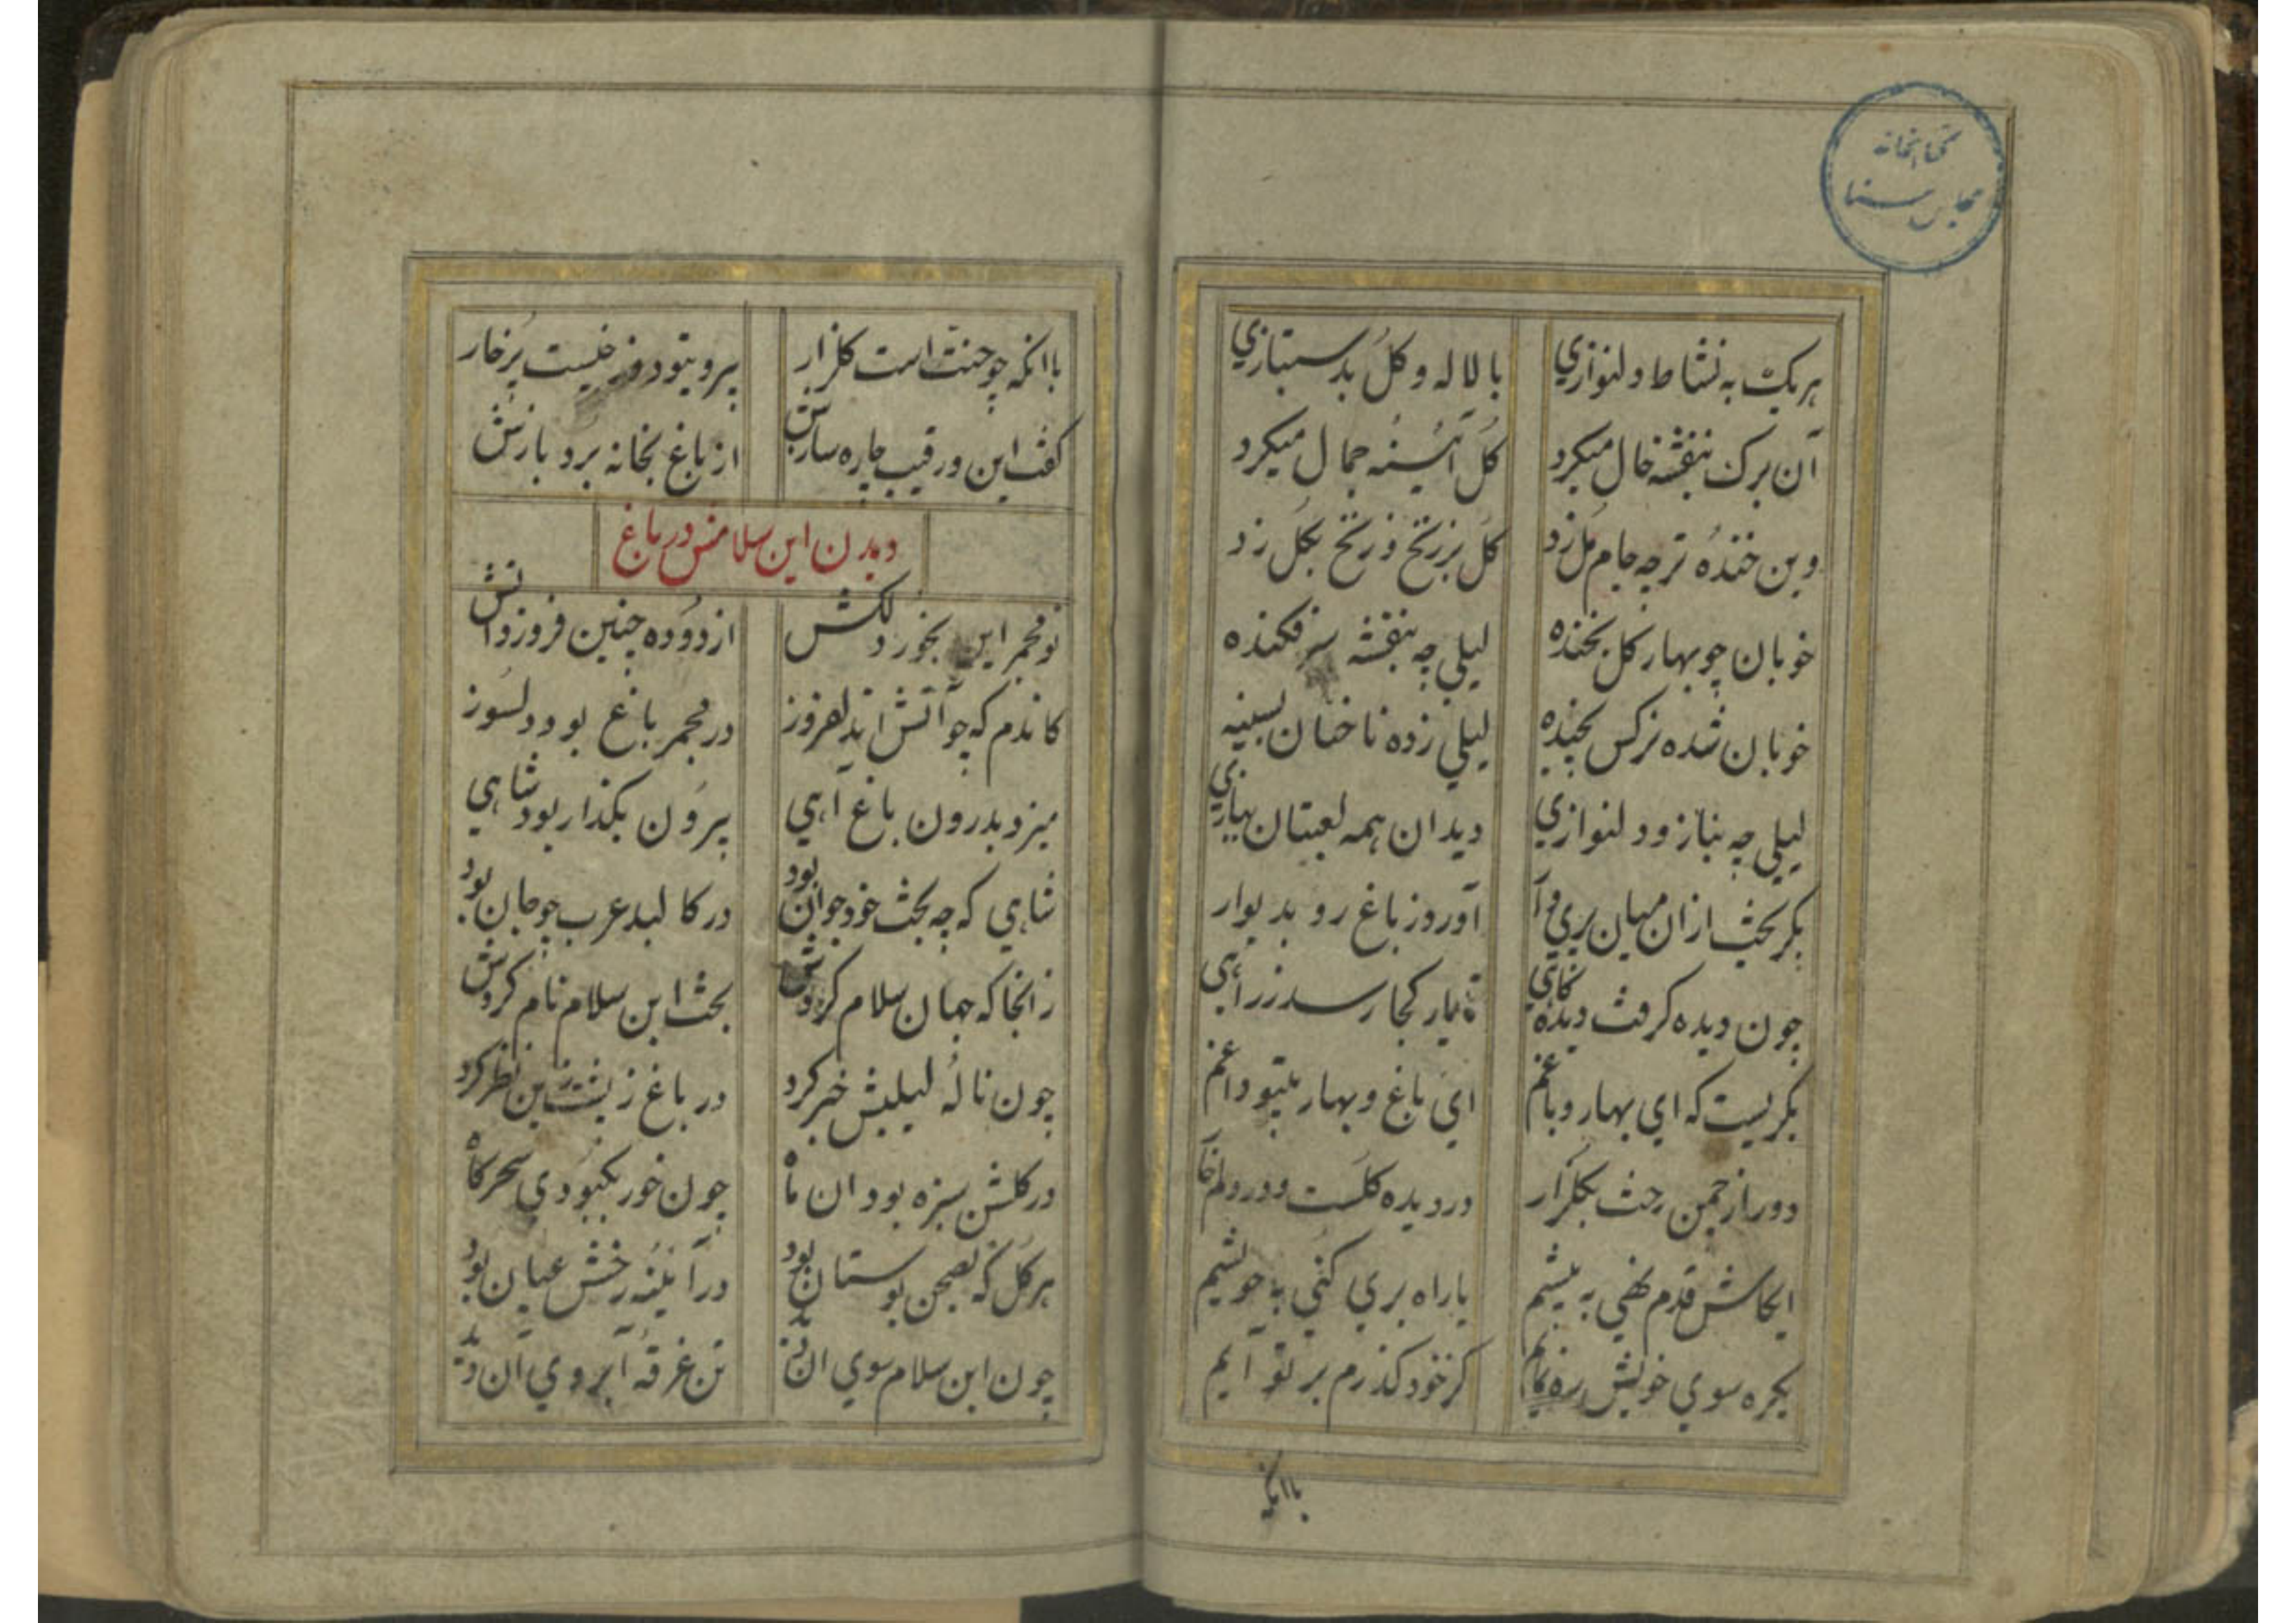 کتابخانه
مجلس سنا
هریک به نشاط و دلنوازی	با لاله و کل بدستبازی
آن برک بنفشه خال میکرد	کل آئینه جمال میکرد
وین خنده ترچه جام مل زد	کل بر رخ و رخ بکل زد
خوبان چو بهار کل بخنده	لیلی چه بنفشه سر فکنده
خوبان شده نرکس بچیده	لیلی زده ناخنان بسینه
لیلی چه بناز و دلنوازی	دید ان همه لعبتان ببازی
بکریخت ازان میان پری وار	آورد ز باغ رو بدیوار
چون دیده کرفت دیده کاهی	تا یار کجا رسد ز راهی
بکریست که ای بهار و باغم	ای باغ و بهار بیتو داغم
دور از چمن رخت بکلزار	در دیده کلست و در دلم خار
ایکاش قدم نهی به پیشم	یا راه بری کنی بخویشم
یکره سوی خویش ره نمایم	کز خود کذرم بر تو آیم
باانکه
باانکه چو جنت است کلزار	بیرویتو دوزخیست پرخار
کفت این و رقیب چاره سازش	از باغ بخانه برد بازش
دیدن ابن سلامش در باغ
نو مجمر این بخور دلکش	از دوده چنین فروزد اتش
کاندم که چو آتش اندلفروز	در مجمر باغ بود دلسوز
میزد بدرون باغ آهی	بیرون بکذار بود شاهی
شاهی که چه بخت خود جوان بود	در کالبد عرب چو جان بود
زانجا که جهان سلام کردش	بخت ابن سلام نام کردش
چون ناله لیلیش خبر کرد	در باغ ز پشت زین نظر کرد
در کلشن سبزه بود ان ماه	چون خور بکبودی سحرکاه
هر کل که بصحن بوستان بود	در آئینه رخش عیان بود
چون ابن سلام سوی ان دید	تن غرقه آبروی ان دید